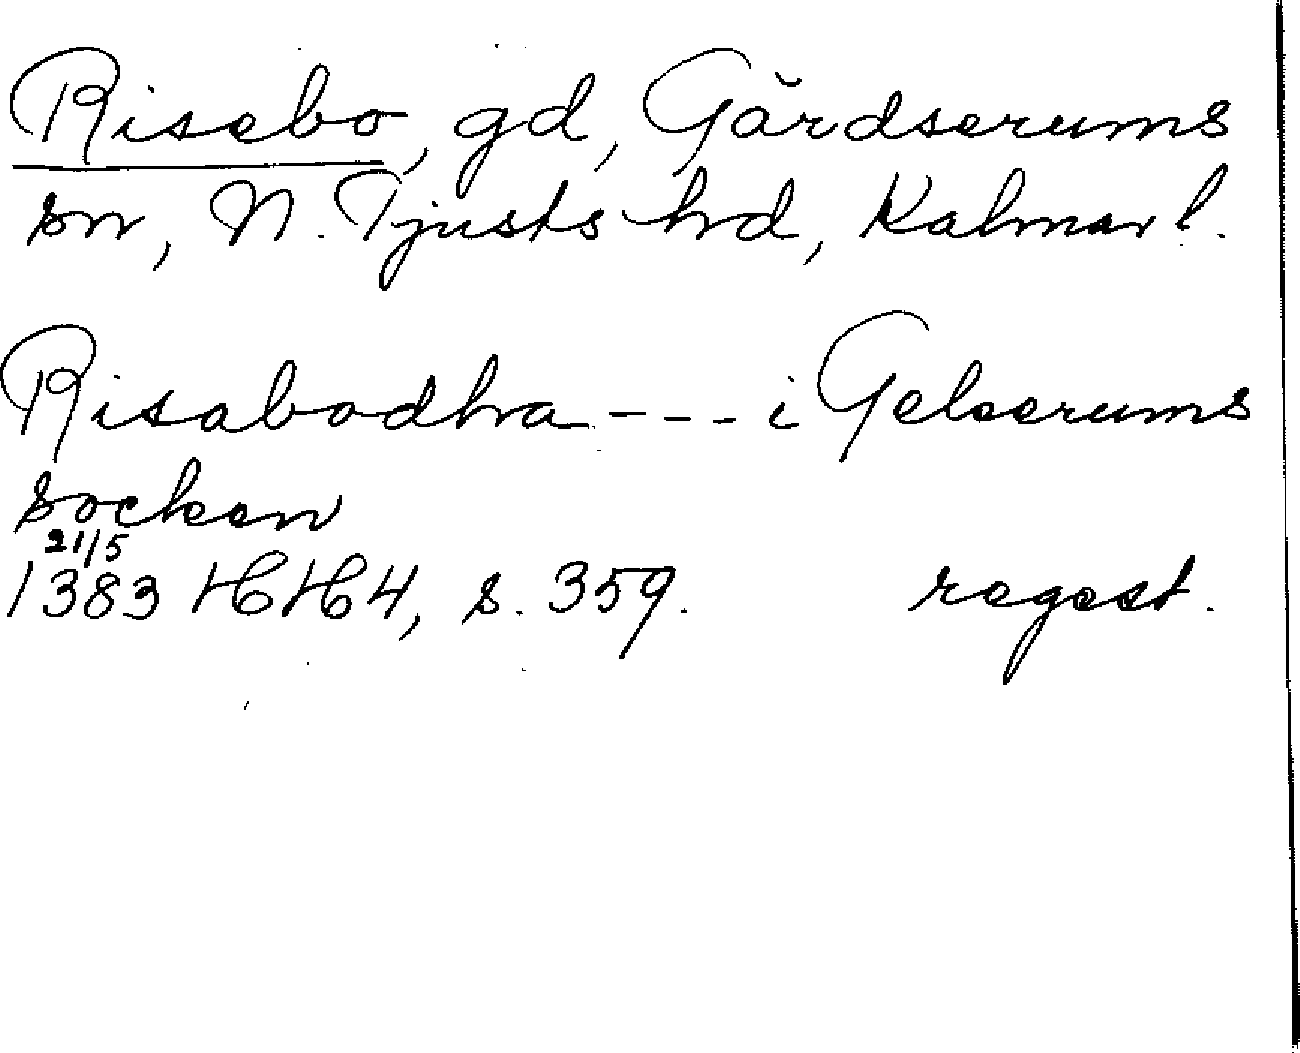 Risebo, gd, Gärdserums
sn, N. Tjusts hd, Kalmar l.
Risabodha --- i Gelserums
socken
21/5
1383 HH 4, s. 359. regest.